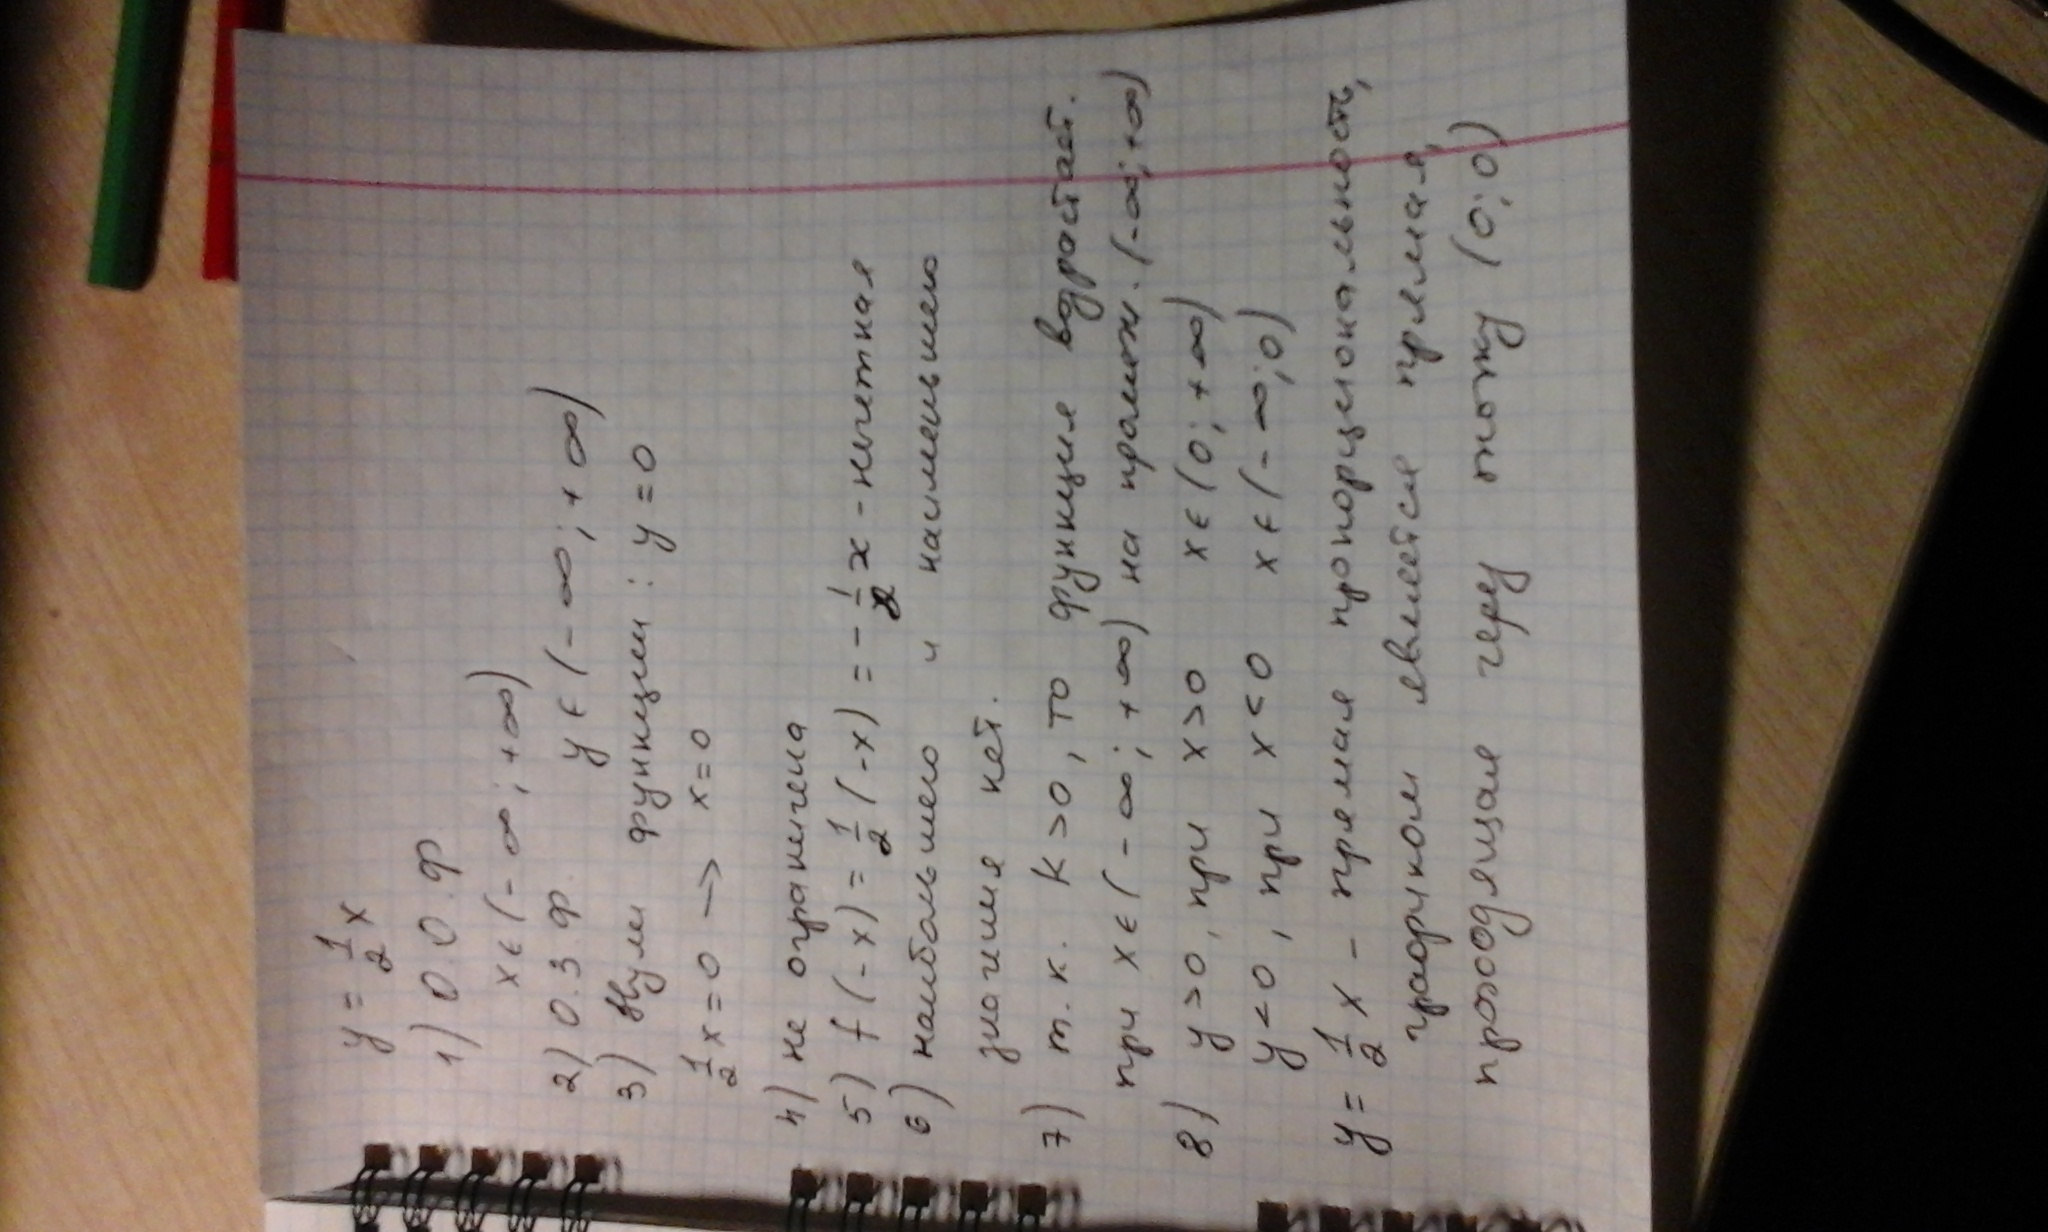 y = 1/2 x
1) О.О.Ф
x ϵ (- ∞; +∞)
2) О.З.Ф. y ϵ (- ∞; + ∞)
3) Нули функции: y = 0
1/2 x = 0 → x = 0
4) не ограничена
5) f (-x) = 1/2 (-x) = - 1/2 x - нечетная
6) наибольшего и наименьшего
значения нет.
7) т.к. k > 0, то функция возрастает.
при x ϵ (- ∞; + ∞) на промеж. (-∞; +∞)
8) y > 0, при x > 0 x ϵ (0; +∞)
y < 0, при x < 0 x ϵ (- ∞; 0)
y = 1/2 x - прямая пропорциональность,
графиком является прямая,
проходящая через точку (0; 0)